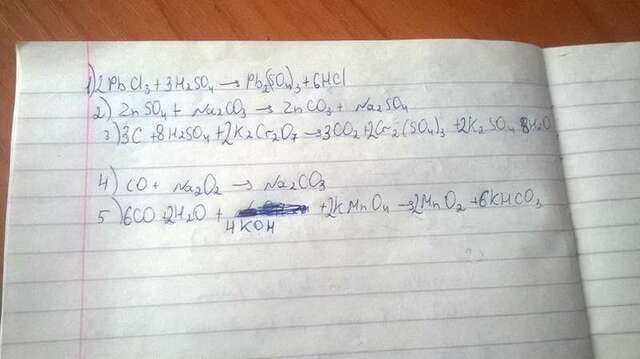 1) 2PbCl3 + 3H2SO4 → Pb2(SO4)3 + 6HCl
2) ZnSO4 + Na2CO3 → ZnCO3 + Na2SO4
3) 3C + 8H2SO4 + 2K2Cr2O7 → 3CO2 + 2Cr2(SO4)3 + 2K2SO4 8H2O
4) CO + Na2O2 → Na2CO3
5) 6CO + 2H2O + 4KOH + 2KMnO4 → 2MnO2 + 6KHCO3